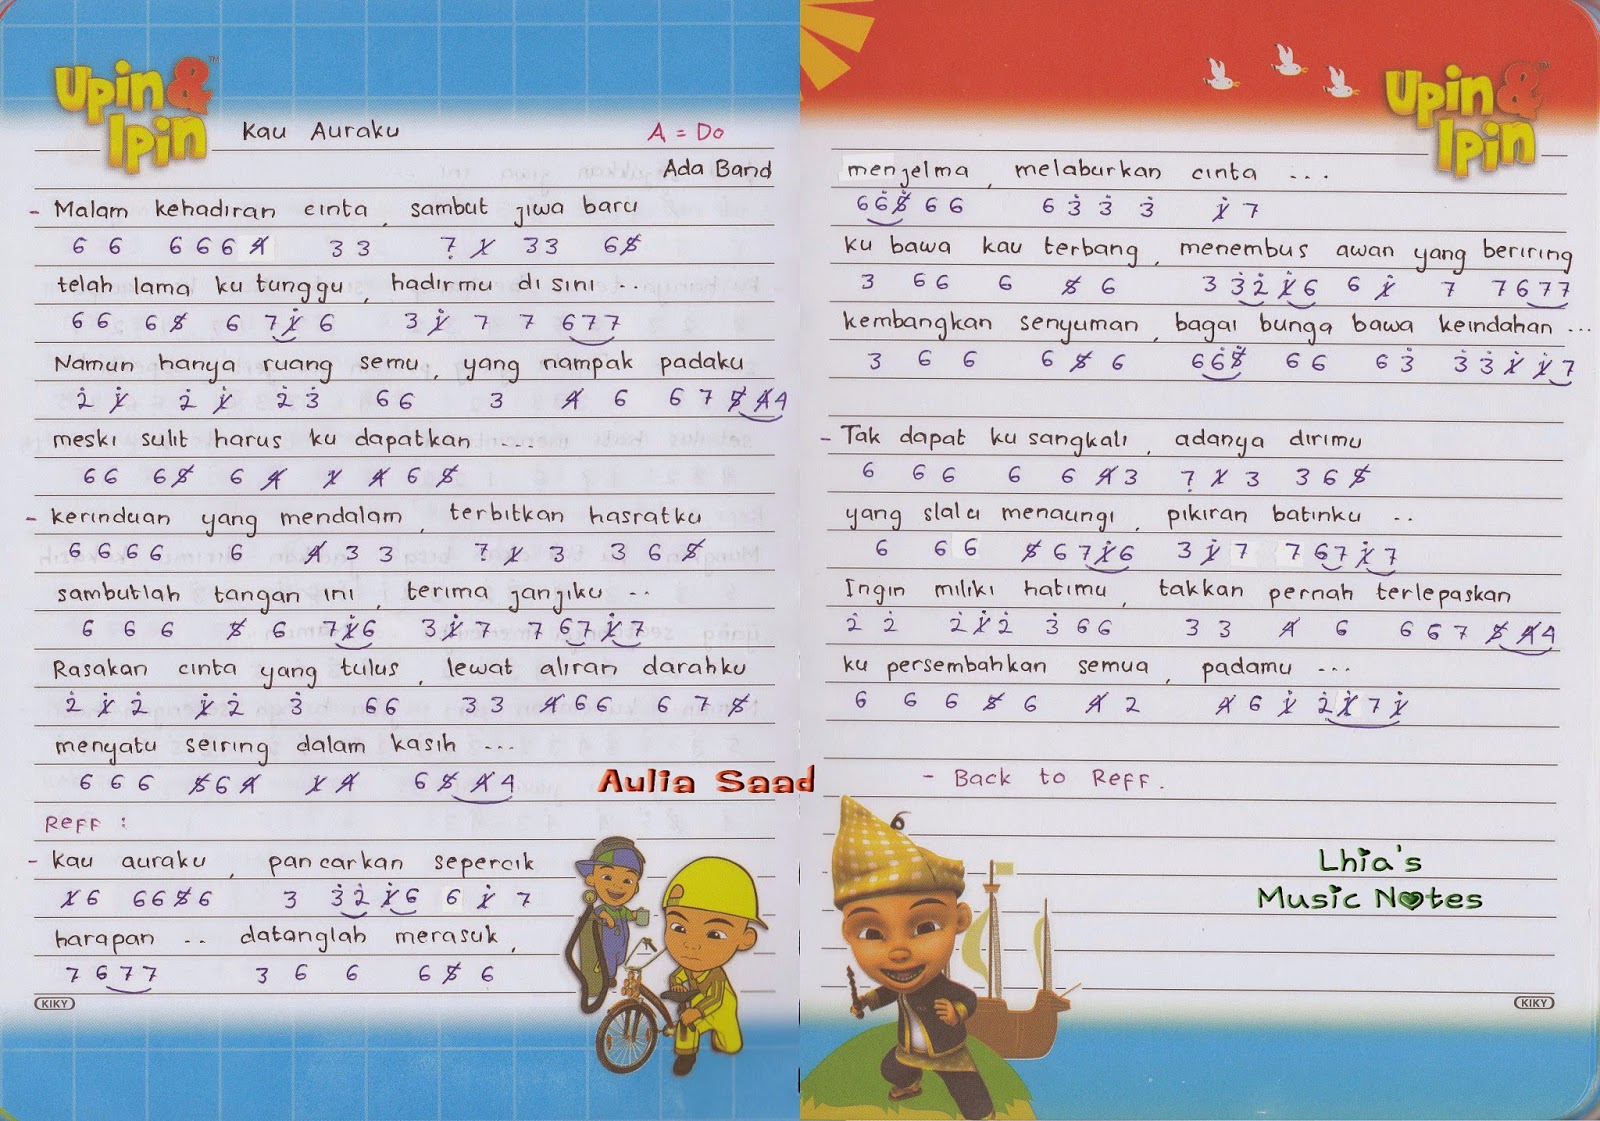 Upin & Ipin™
Kau Auraku A = Do
Ada Band
- Malam kehadiran cinta, sambut jiwa baru
6 6 6 6 6 4̸ 3 3 7̣ 1̸ 3 3 6 5̸
telah lama ku tunggu, hadirmu di sini ..
6 6 6 5̸ 6 7 1̸̇ 6 3 1̸̇ 7 7 6 7 7
Namun hanya ruang semu, yang nampak padaku
2̇ 1̸̇ 2̇ 1̸̇ 2̇ 3̇ 6 6 3 4̸ 6 6 7 5̸ 4̸ 4
meski sulit harus ku dapatkan ....
6 6 6 5̸ 6 4̸ 1̸ 4̸ 6 5̸
- kerinduan yang mendalam, terbitkan hasratku
6 6 6 6 6 4̸ 3 3 7̣ 1̸ 3 3 6 5̸
sambutlah tangan ini, terima janjiku ..
6 6 6 5̸ 6 7 1̸̇ 6 3 1̸̇ 7 7 6 7 1̸̇ 7
Rasakan cinta yang tulus, lewat aliran darahku
2̇ 1̸̇ 2̇ 1̸̇ 2̇ 3̇ 6 6 3 3 4̸ 6 6 6 7 5̸
menyatu seiring dalam kasih ...
6 6 6 5̸ 6 4̸ 1̸ 4̸ 6 5̸ 4̸ 4
Aulia Saad
Reff :
- kau auraku, pancarkan sepercik
1̸ 6 6 6 5̸ 6 3 3̇ 2̇ 1̸̇ 6 6 1̸̇ 7
harapan .. datanglah merasuk,
7 6 7 7 3 6 6 6 5̸ 6
KIKY
Upin & Ipin™
menjelma, melaburkan cinta ...
6 6 5̸̇ 6 6 6 3̇ 3̇ 3̇ 1̸̇ 7
ku bawa kau terbang, menembus awan yang beriring
3 6 6 6 5̸ 6 3 3̇ 2̇ 1̸̇ 6 6 1̸̇ 7 7 6 7 7
kembangkan senyuman, bagai bunga bawa keindahan ...
3 6 6 6 5̸ 6 6 6̇ 5̸̇ 6 6 6 3̇ 3̇ 3̇ 1̸̇ 1̸̇ 7
- Tak dapat ku sangkali, adanya dirimu
6 6 6 6 6 4̸ 3 7̣ 1̸ 3 3 6 5̸
yang slalu menaungi, pikiran batinku ..
6 6 6 5̸ 6 7 1̸̇ 6 3 1̸̇ 7 7 6 7 1̸̇ 7
Ingin miliki hatimu, takkan pernah terlepaskan
2̇ 2̇ 2̇ 1̸̇ 2̇ 3̇ 6 6 3 3 4̸ 6 6 6 7 5̸ 4̸ 4
ku persembahkan semua, padamu ...
6 6 6 5̸ 6 4̸ 2 4̸ 6 1̸̇ 2̇ 1̸̇ 7 1̸̇
- Back to Reff.
Lhia's
Music Notes
KIKY